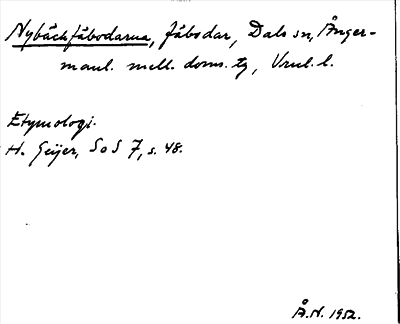 Nybäckfäbodarna, fäbodar, Dals sn, Ånger-
manl. mell. doms. tg, Vrnl. l.
Etymologi.
H. Geijer, SoS 7, s. 48.
Å.N. 1952.